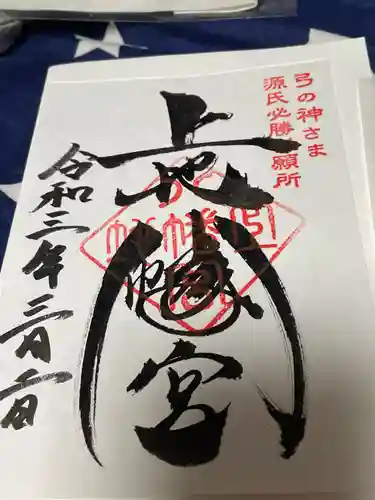 弓の神さま
源氏必勝祈願所
上地八幡宮
令和三年三月二日